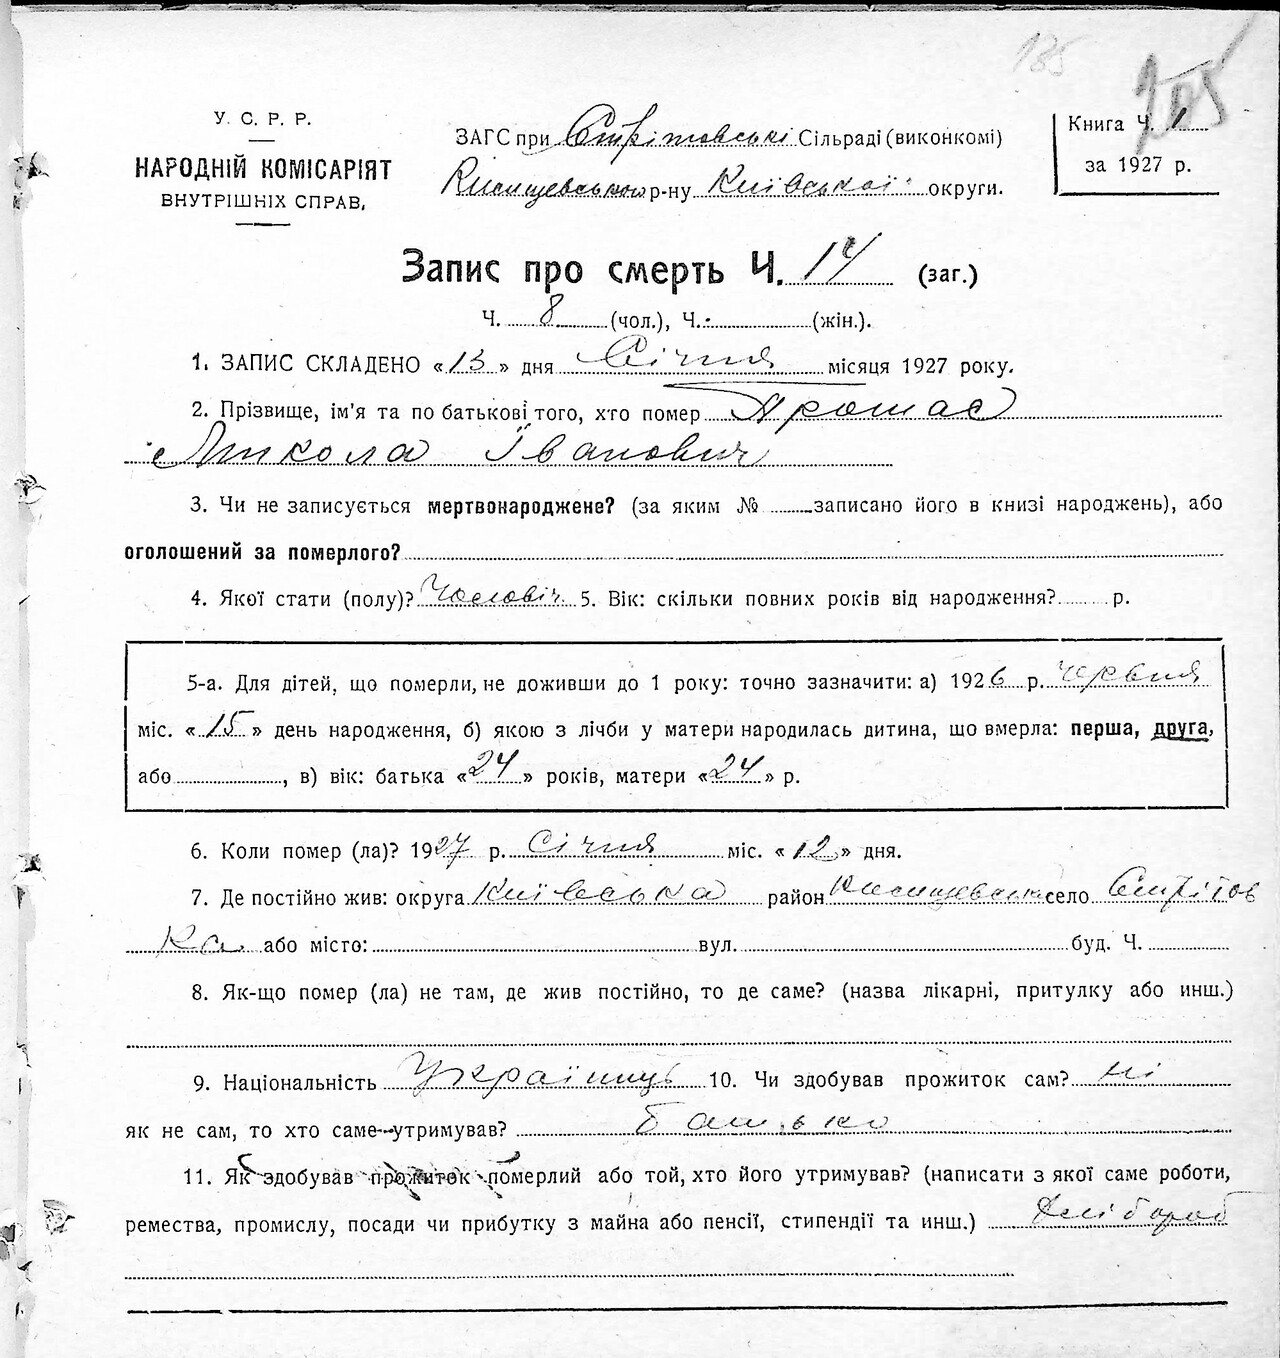 135
205
У. С. Р. Р.
НАРОДНІЙ КОМІСАРІЯТ
ВНУТРІШНІХ СПРАВ.
ЗАГС при Стрітовські Сільраді (виконкомі)
р-ну Київської округи.
Книга Ч. 1
за 1927 р.
Запис про смерть Ч. 14 (заг.)
Ч. 8 (чол.), Ч. - (жін.).
1. ЗАПИС СКЛАДЕНО «13» дня Січня місяця 1927 року.
2. Прізвище, ім'я та по батькові того, хто помер
Микола Іванович
3. Чи не записується мертвонароджене? (за яким № записано його в книзі народжень), або
оголошений за померлого?
4. Якої стати (полу)? Чоловіч 5. Вік: скільки повних років від народження? р.
5-а. Для дітей, що померли, не доживши до 1 року: точно зазначити: а) 1926 р. Червня
міс. «15» день народження, б) якою з лічби у матери народилась дитина, що вмерла: перша, друга,
або , в) вік: батька «24» років, матери «24» р.
6. Коли помер (ла)? 1927 р. Січня міс. «12» дня.
7. Де постійно жив: округа Київська район село Стрітов
ка або місто: вул. буд. Ч.
8. Як-що помер (ла) не там, де жив постійно, то де саме? (назва лікарні, притулку або инш.)
9. Національність Українець 10. Чи здобував прожиток сам? ні
як не сам, то хто саме утримував? батько
11. Як здобував прожиток померлий або той, хто його утримував? (написати з якої саме роботи,
ремества, промислу, посади чи прибутку з майна або пенсії, стипендії та инш.) Хлібороб